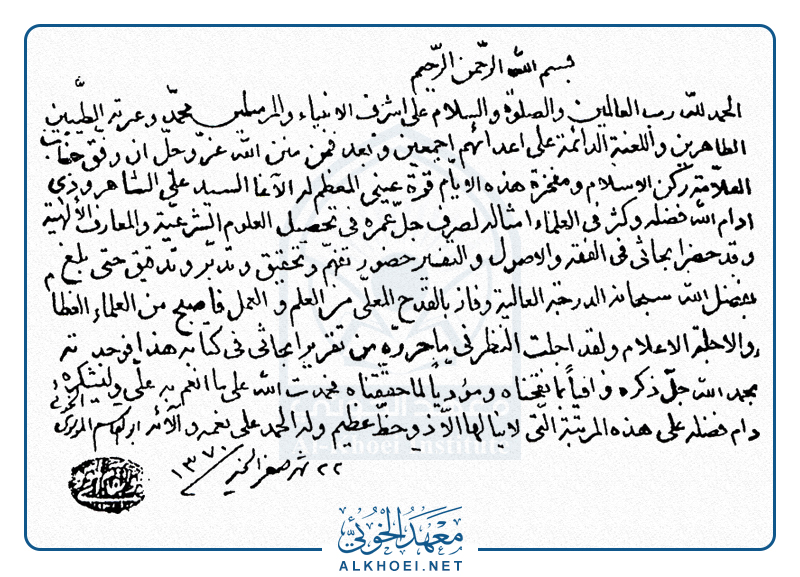 بسم الله الرحمن الرحيم
الحمد لله رب العالمين والصلوة والسلام على اشرف الانبياء والمرسلين محمد وعترته الطيبين
الطاهرين واللعنة الدائمة على اعدائهم اجمعين وبعد فمن منن الله عز وجل ان وفق جناب
العلامة ركن الاسلام ومفخرة هذه الايام قرة عيني المعظم له الآغا السيد علي الشاهرودي
ادام الله فضله وكثر في العلماء امثاله لصرف جل عمره في تحصيل العلوم الشرعية والمعارف الالهية
وقد حضر ابحاثي في الفقه والاصول والتفسير حضور تفهم وتحقيق وتدبر وتدقيق حتى بلغ
بفضل الله سبحانه الدرجة العالية وفاز بالقدح المعلى من العلم والعمل فاصبح من العلماء العظام
والاجلة الاعلام ولقد اجلت النظر في ما حرره من تقرير ابحاثي في كتابه هذا فوجدته
بحمد الله جل ذكره وافياً بما نقحناه ومؤدياً لما حققناه فحمدت الله على ما انعم به علي وليشكره
دام فضله على هذه المرتبة التي لا ينالها الا ذو حظ عظيم وله الحمد على نعمه وآلائه ابو القاسم الموسوي الخوئي
٢٢ شهر صفر الخير ١٣٧٠
معهد الخوئي
Al-Khoei Institute
معهد الخوئي
ALKHOEI.NET